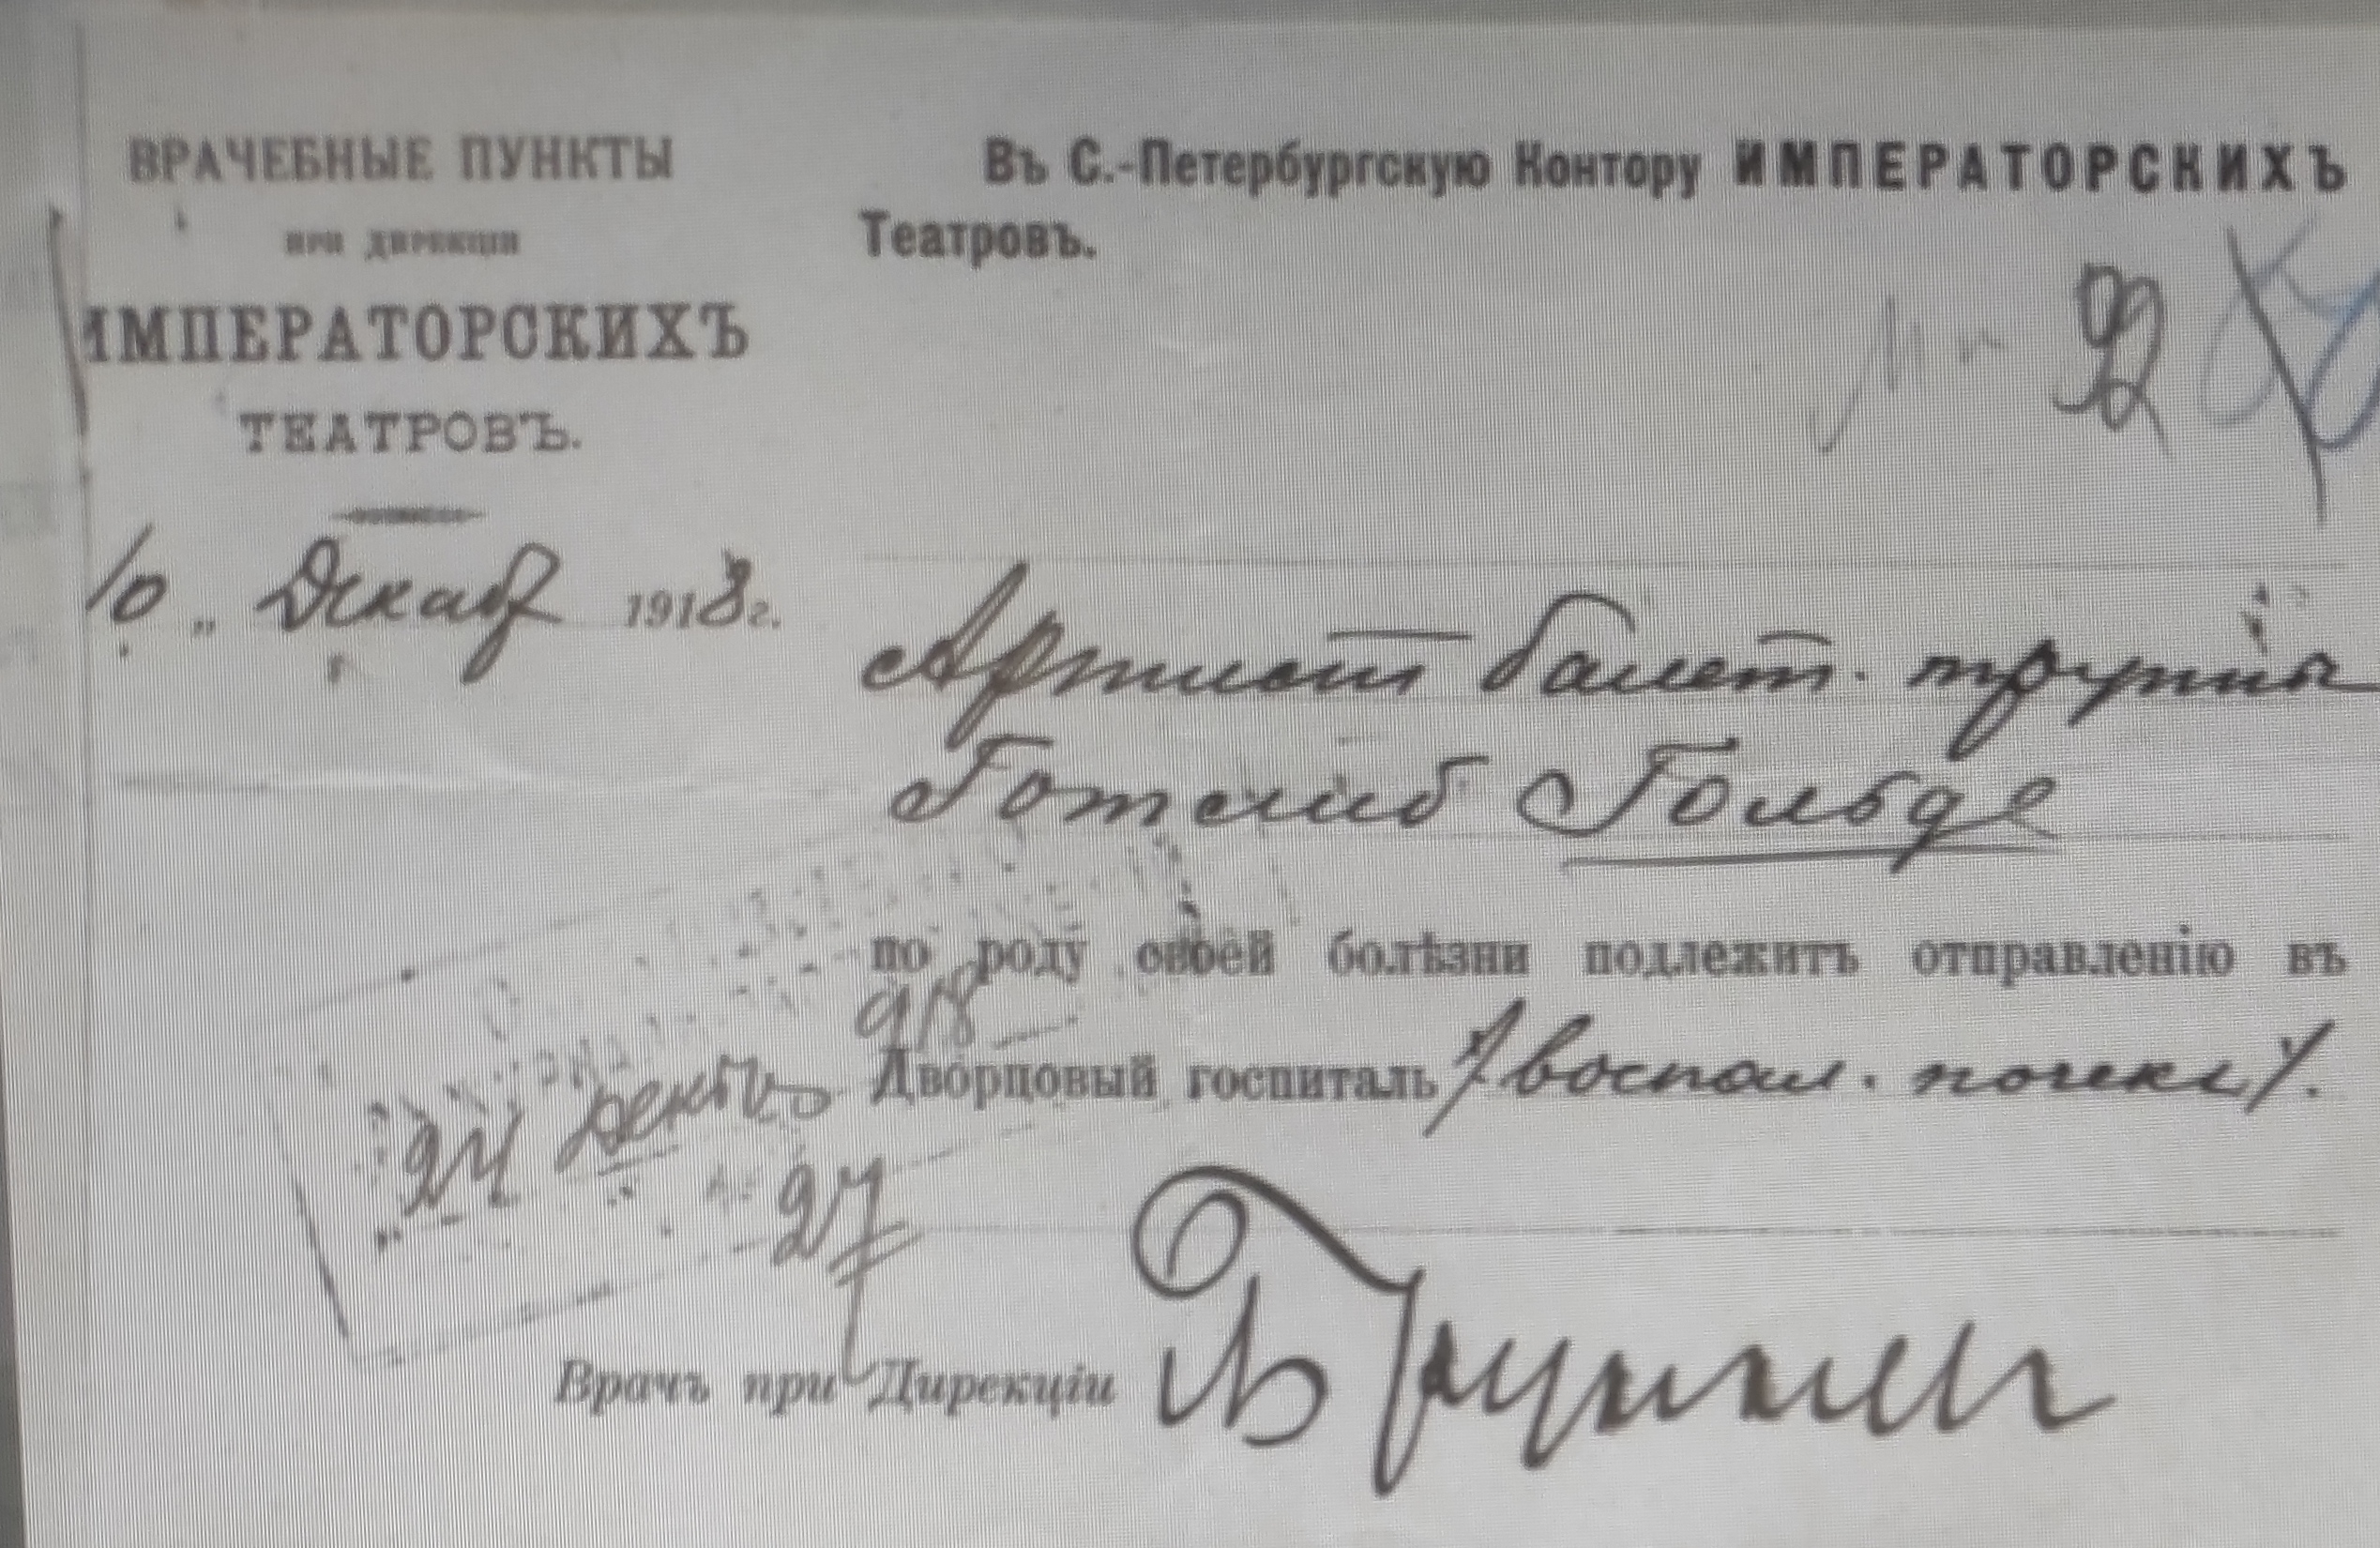 ВРАЧЕБНЫЕ ПУНКТЫ
ПРИ ДИРЕКЦІИ
ИМПЕРАТОРСКИХЪ
ТЕАТРОВЪ.
10 „ Декаб 1913 г.
Въ С.-Петербургскую Контору ИМПЕРАТОРСКИХЪ
Театровъ.
92
Артист балет. труппы
Готлиб Гольде
по роду своей болѣзни подлежитъ отправленію въ
918
Дворцовый госпиталь / воспал. почек /.
Врачъ при Дирекціи